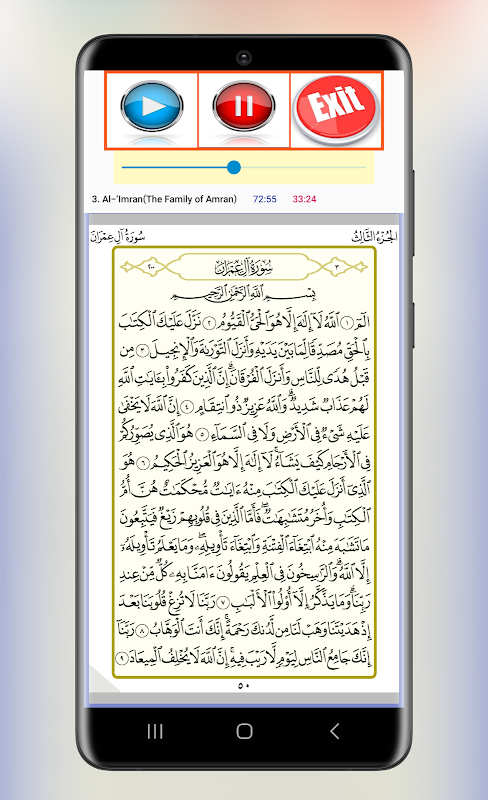 Exit
3. Al-'Imran(The Family of Amran) 72:55 33:24
الجُزْءُ الثَّالِثُ سُورَةُ آلِ عِمْرَانَ
٣ سُورَةُ آلِ عِمْرَانَ ٢٠٠
بِسْمِ ٱللَّهِ ٱلرَّحْمَٰنِ ٱلرَّحِيمِ
الٓمٓ ١ ٱللَّهُ لَآ إِلَٰهَ إِلَّا هُوَ ٱلْحَىُّ ٱلْقَيُّومُ ٢ نَزَّلَ عَلَيْكَ ٱلْكِتَٰبَ
بِٱلْحَقِّ مُصَدِّقًا لِّمَا بَيْنَ يَدَيْهِ وَأَنزَلَ ٱلتَّوْرَىٰةَ وَٱلْإِنجِيلَ ٣ مِن
قَبْلُ هُدًى لِّلنَّاسِ وَأَنزَلَ ٱلْفُرْقَانَ ۗ إِنَّ ٱلَّذِينَ كَفَرُوا۟ بِـَٔايَٰتِ ٱللَّهِ
لَهُمْ عَذَابٌ شَدِيدٌ ۗ وَٱللَّهُ عَزِيزٌ ذُو ٱنتِقَامٍ ٤ إِنَّ ٱللَّهَ لَا يَخْفَىٰ
عَلَيْهِ شَىْءٌ فِى ٱلْأَرْضِ وَلَا فِى ٱلسَّمَآءِ ٥ هُوَ ٱلَّذِى يُصَوِّرُكُمْ
فِى ٱلْأَرْحَامِ كَيْفَ يَشَآءُ ۚ لَآ إِلَٰهَ إِلَّا هُوَ ٱلْعَزِيزُ ٱلْحَكِيمُ ٦ هُوَ
ٱلَّذِىٓ أَنزَلَ عَلَيْكَ ٱلْكِتَٰبَ مِنْهُ ءَايَٰتٌ مُّحْكَمَٰتٌ هُنَّ أُمُّ
ٱلْكِتَٰبِ وَأُخَرُ مُتَشَٰبِهَٰتٌ ۖ فَأَمَّا ٱلَّذِينَ فِى قُلُوبِهِمْ زَيْغٌ فَيَتَّبِعُونَ
مَا تَشَٰبَهَ مِنْهُ ٱبْتِغَآءَ ٱلْفِتْنَةِ وَٱبْتِغَآءَ تَأْوِيلِهِۦ ۗ وَمَا يَعْلَمُ تَأْوِيلَهُۥٓ
إِلَّا ٱللَّهُ ۗ وَٱلرَّٰسِخُونَ فِى ٱلْعِلْمِ يَقُولُونَ ءَامَنَّا بِهِۦ كُلٌّ مِّنْ عِندِ
رَبِّنَا ۗ وَمَا يَذَّكَّرُ إِلَّآ أُو۟لُوا۟ ٱلْأَلْبَٰبِ ٧ رَبَّنَا لَا تُزِغْ قُلُوبَنَا بَعْدَ
إِذْ هَدَيْتَنَا وَهَبْ لَنَا مِن لَّدُنكَ رَحْمَةً ۚ إِنَّكَ أَنتَ ٱلْوَهَّابُ ٨ رَبَّنَآ
إِنَّكَ جَامِعُ ٱلنَّاسِ لِيَوْمٍ لَّا رَيْبَ فِيهِ ۚ إِنَّ ٱللَّهَ لَا يُخْلِفُ ٱلْمِيعَادَ ٩
٥٠